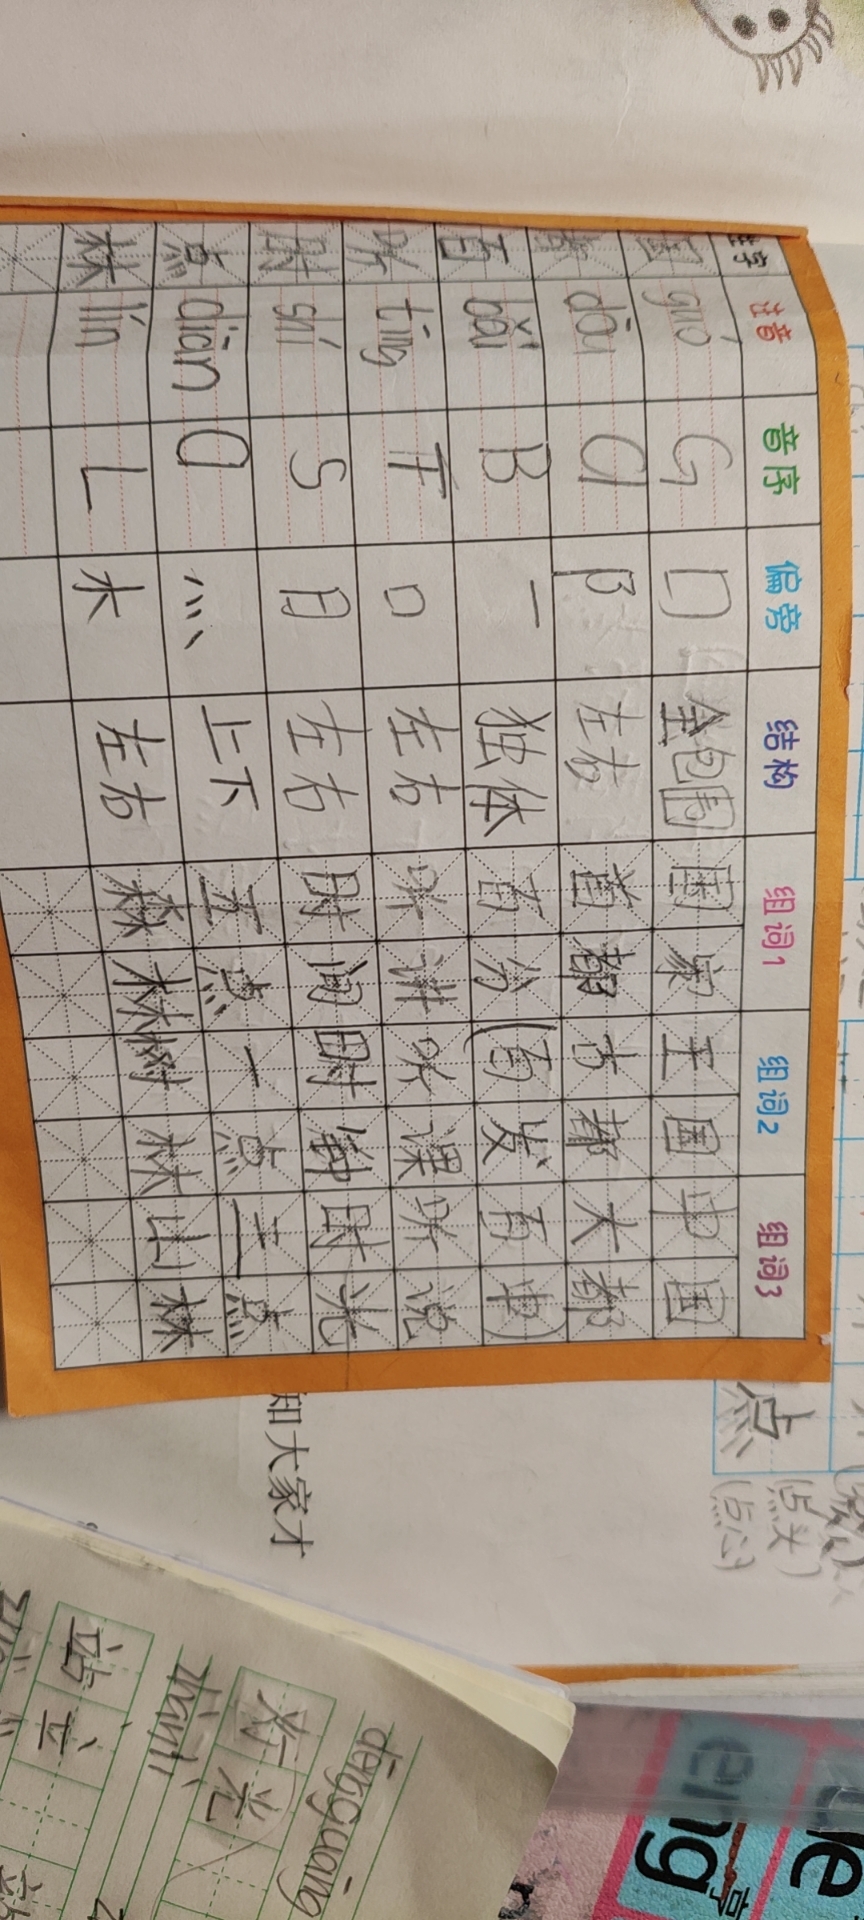 生字 注音 音序 偏旁 结构 组词1 组词2 组词3
国 guó G 囗 全包围 国家 王国 中国
都 dōu d 阝 左右 首都 古都 大都
百 bǎi B 一 独体 百分(百发百中)
听 tīng T 口 左右 听讲 听课 听说
时 shí S 日 左右 时间 时钟 时光
点 diǎn D 灬 上下 五点 一点 三点
林 lín L 木 左右 森林 树林 山林
点
(点头)
(点心)
知大家才
dēngguāng
灯光
zhànlì
站立
eng
ng